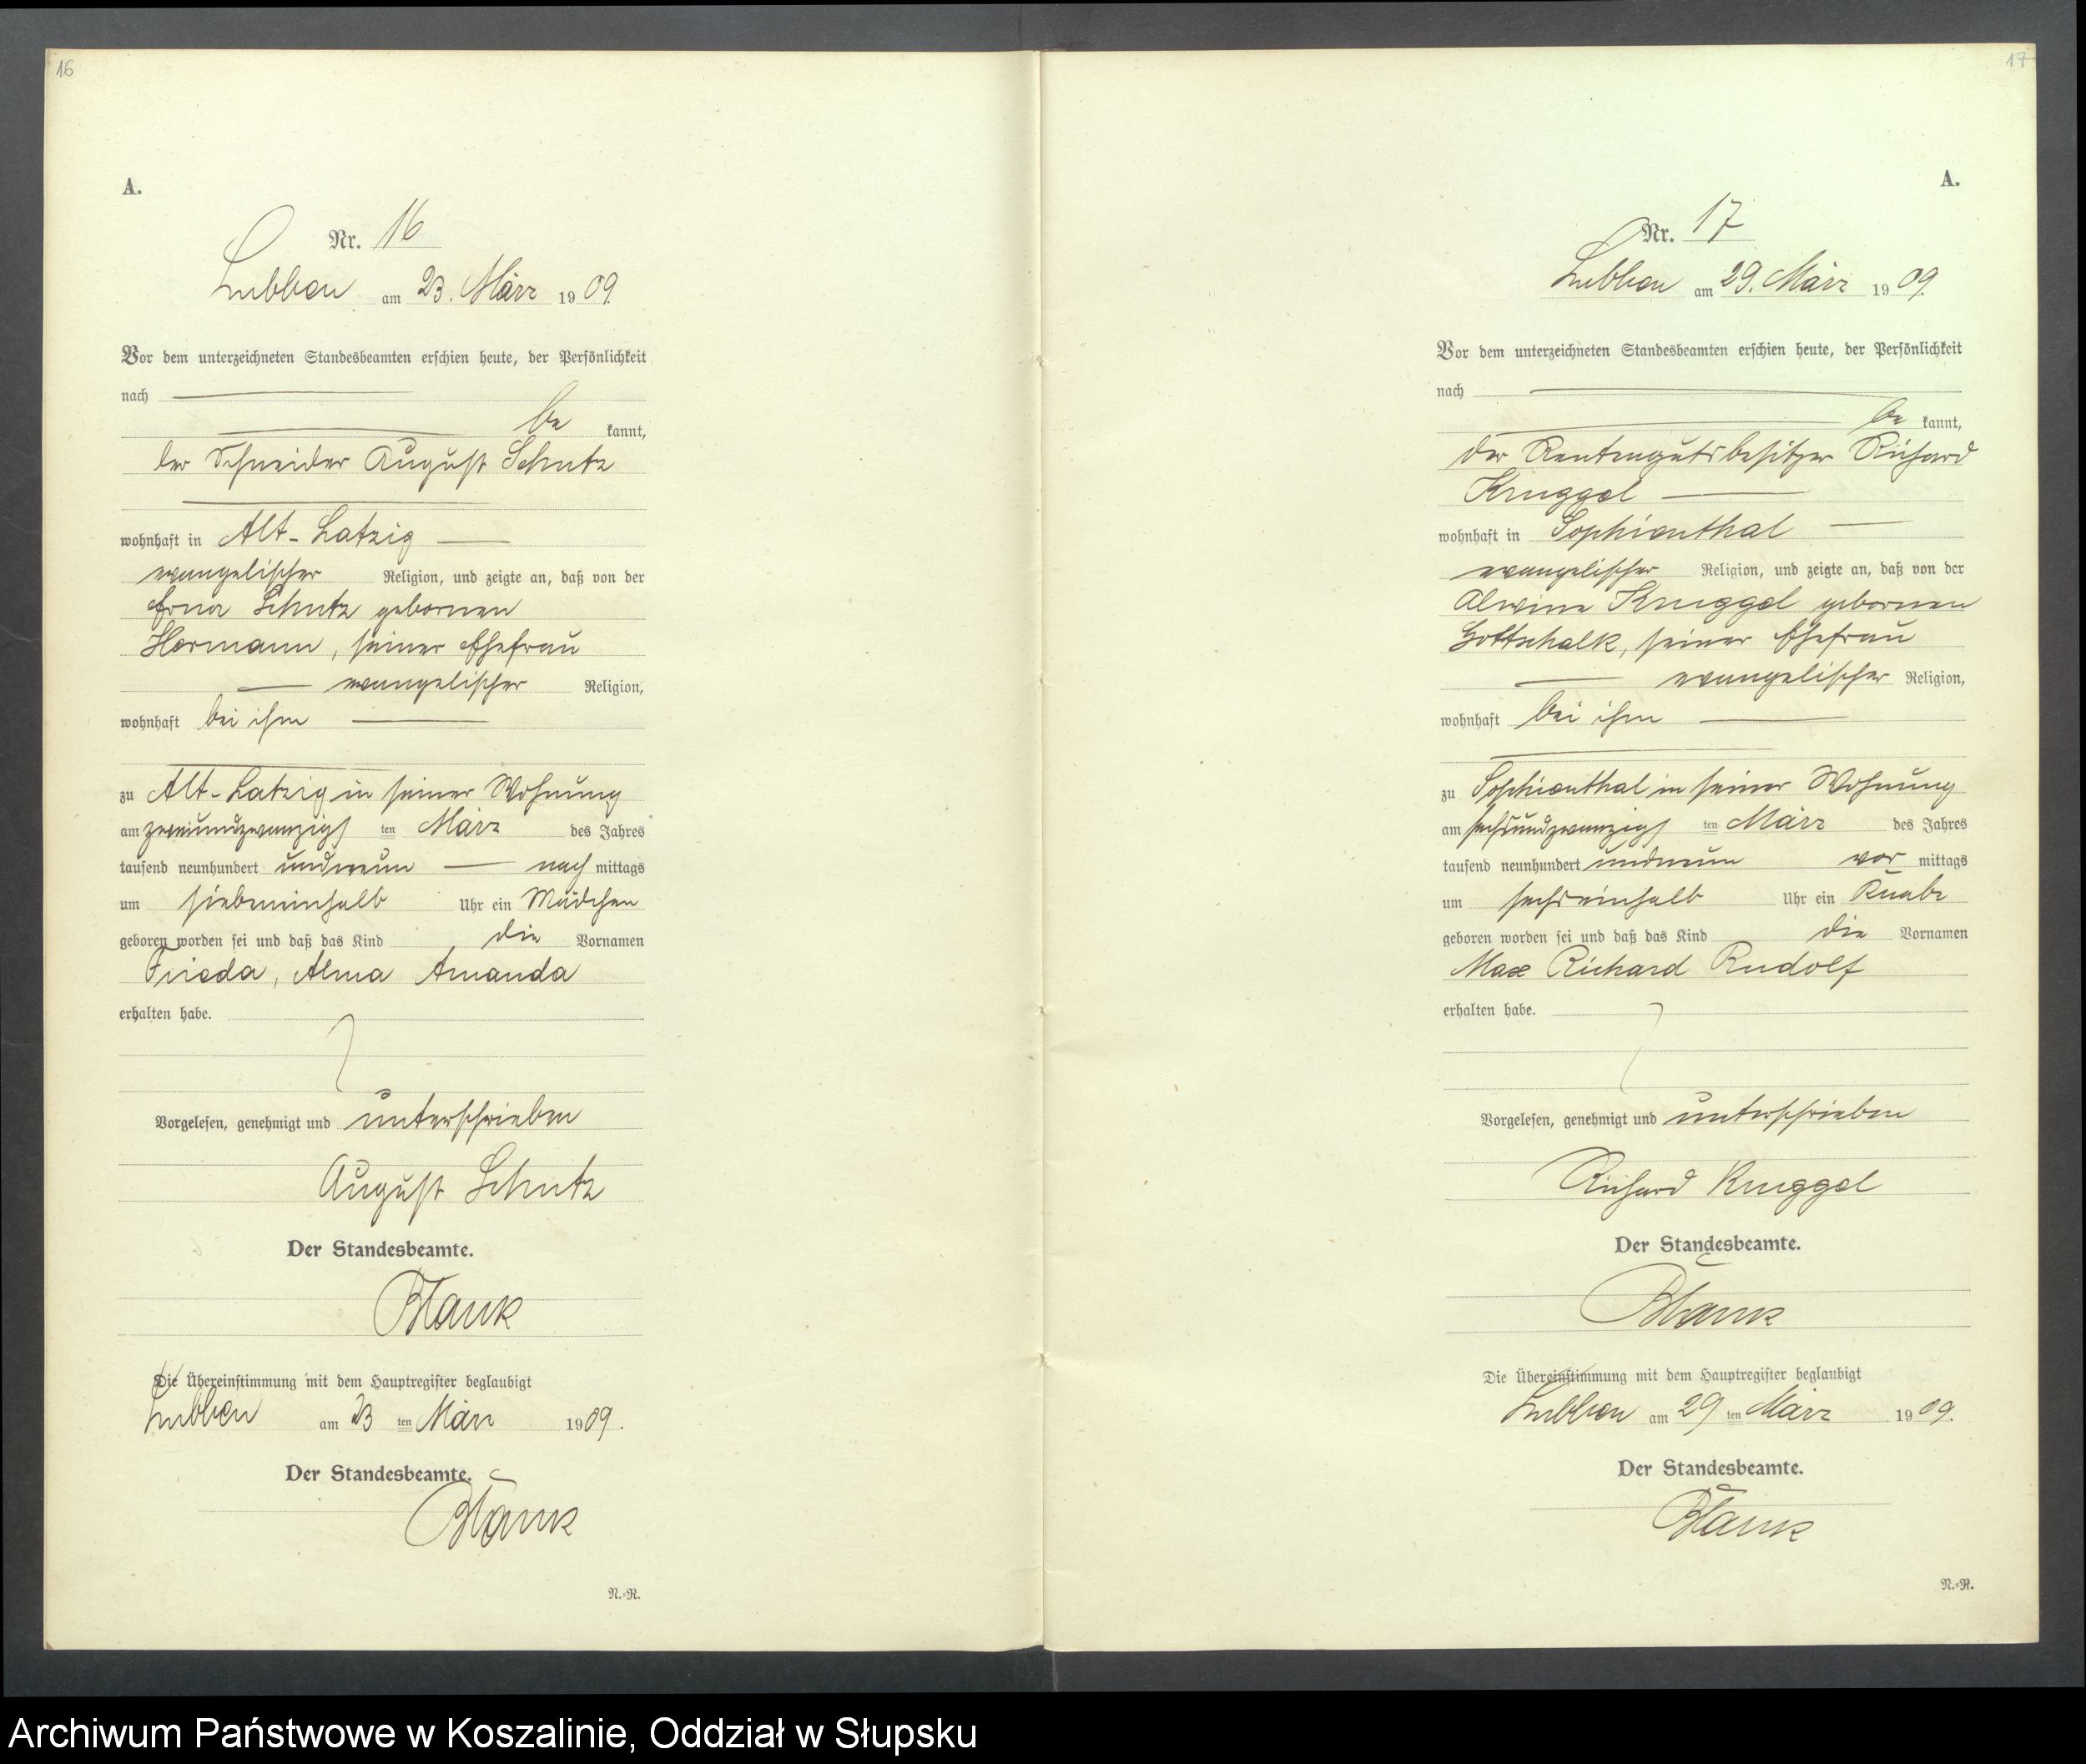 16
A.
Nr. 16
Lubben am 23. März 1909.
Vor dem unterzeichneten Standesbeamten erschien heute, der Persönlichkeit
nach
be kannt,
der Schneider August Schutz
wohnhaft in Alt-Latzig
evangelischer Religion, und zeigte an, daß von der
Erna Schutz gebornen
Hermann, seiner Ehefrau
evangelischer Religion,
wohnhaft bei ihm
zu Alt-Latzig in seiner Wohnung
am zweiundzwanzigs ten März des Jahres
tausend neunhundert undneun nach mittags
um siebeneinhalb Uhr ein Mädchen
geboren worden sei und daß das Kind die Vornamen
Frieda, Alma Amanda
erhalten habe.
Vorgelesen, genehmigt und unterschrieben
August Schutz
Der Standesbeamte.
Blank
Die Übereinstimmung mit dem Hauptregister beglaubigt
Lubben am 23 ten März 1909.
Der Standesbeamte.
Blank
N.=R.
17
A.
Nr. 17
Lubben am 29. März 1909.
Vor dem unterzeichneten Standesbeamten erschien heute, der Persönlichkeit
nach
be kannt,
der Rentengutsbesitzer Richard
Kruggel
wohnhaft in Sophienthal
evangelischer Religion, und zeigte an, daß von der
Alwine Kruggel gebornen
Gottschalk, seiner Ehefrau
evangelischer Religion,
wohnhaft bei ihm
zu Sophienthal in seiner Wohnung
am sechsundzwanzigs ten März des Jahres
tausend neunhundert undneun vor mittags
um sechseinhalb Uhr ein Knabe
geboren worden sei und daß das Kind die Vornamen
Max Richard Rudolf
erhalten habe.
Vorgelesen, genehmigt und unterschrieben
Richard Kruggel
Der Standesbeamte.
Blank
Die Übereinstimmung mit dem Hauptregister beglaubigt
Lubben am 29 ten März 1909.
Der Standesbeamte.
Blank
N.=R.
Archiwum Państwowe w Koszalinie, Oddział w Słupsku